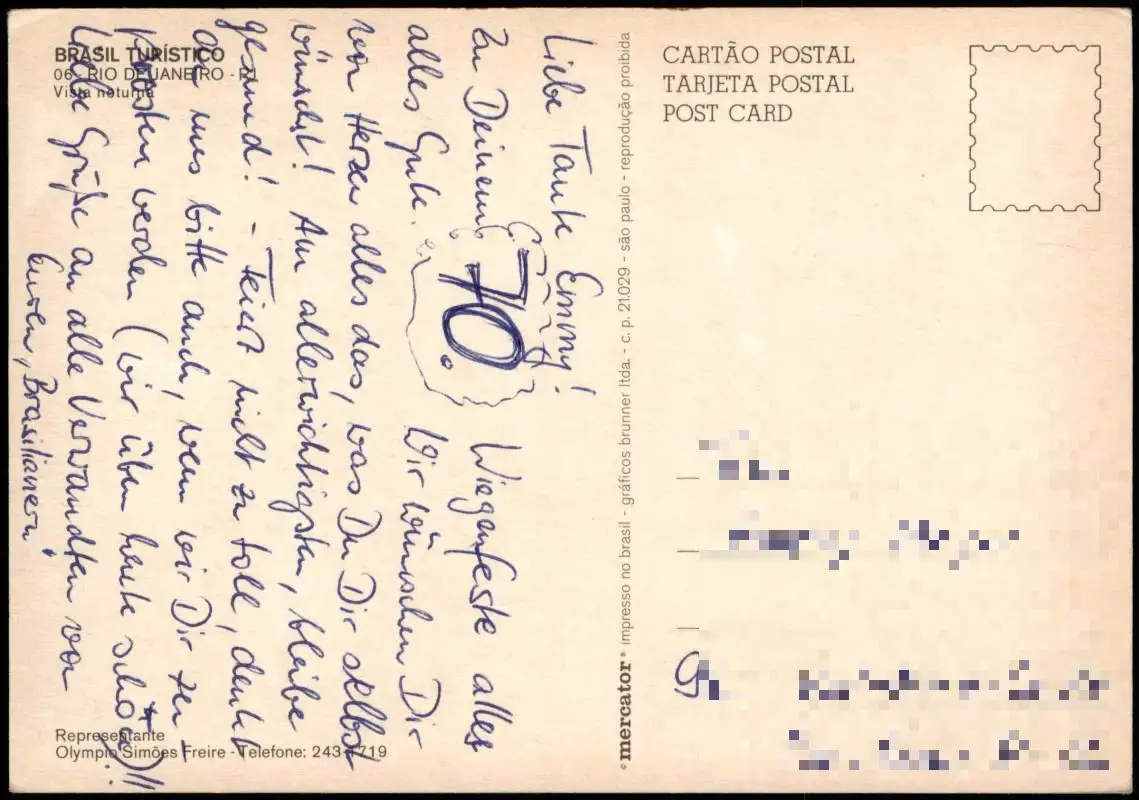 BRASIL TURÍSTICO
06 - RIO DE JANEIRO - RJ
Vista noturna
Liebe Tante Emmy!
Zu Deinem 70. Wiegenfeste alles
alles Gute. Wir wünschen Dir
von Herzen alles das, was Du Dir selbst
wünschst! Am allerwichtigsten, bleibe
gesund! - Feiert nicht zu toll, denkt
an uns bitte auch, wenn wir Dir zu-
prosten werden (wir üben heute schon)!!
Liebe Grüße an alle Verwandten von
Euren "Brasilianern"
Representante
Olympio Simões Freire - Telefone: 243-1719
mercator® impresso no brasil - gráficos brunner ltda. - c. p. 21.029 - são paulo - reprodução proibida
CARTÃO POSTAL
TARJETA POSTAL
POST CARD